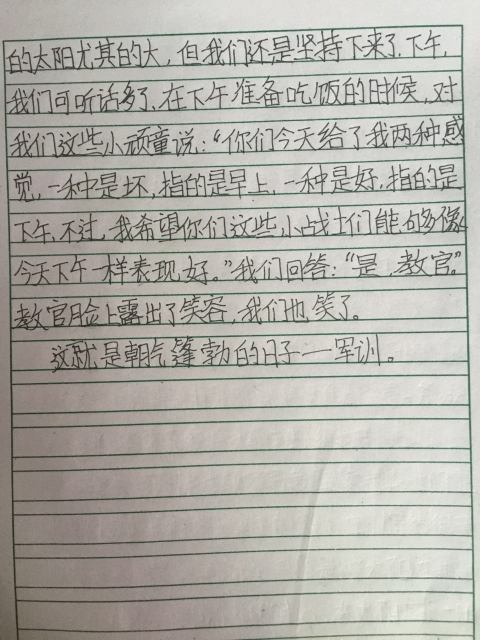 的太阳尤其的大，但我们还是坚持下来了.下午,
我们可听话多了,在下午准备吃饭的时候,对
我们这些小顽童说:“你们今天给了我两种感
觉,一种是坏,指的是早上,一种是好,指的是
下午,不过,我希望你们这些小战士们能够像
今天下午一样表现好。”我们回答:“是,教官。”
教官脸上露出了笑容,我们也笑了。
这就是朝气篷勃的日子—军训。